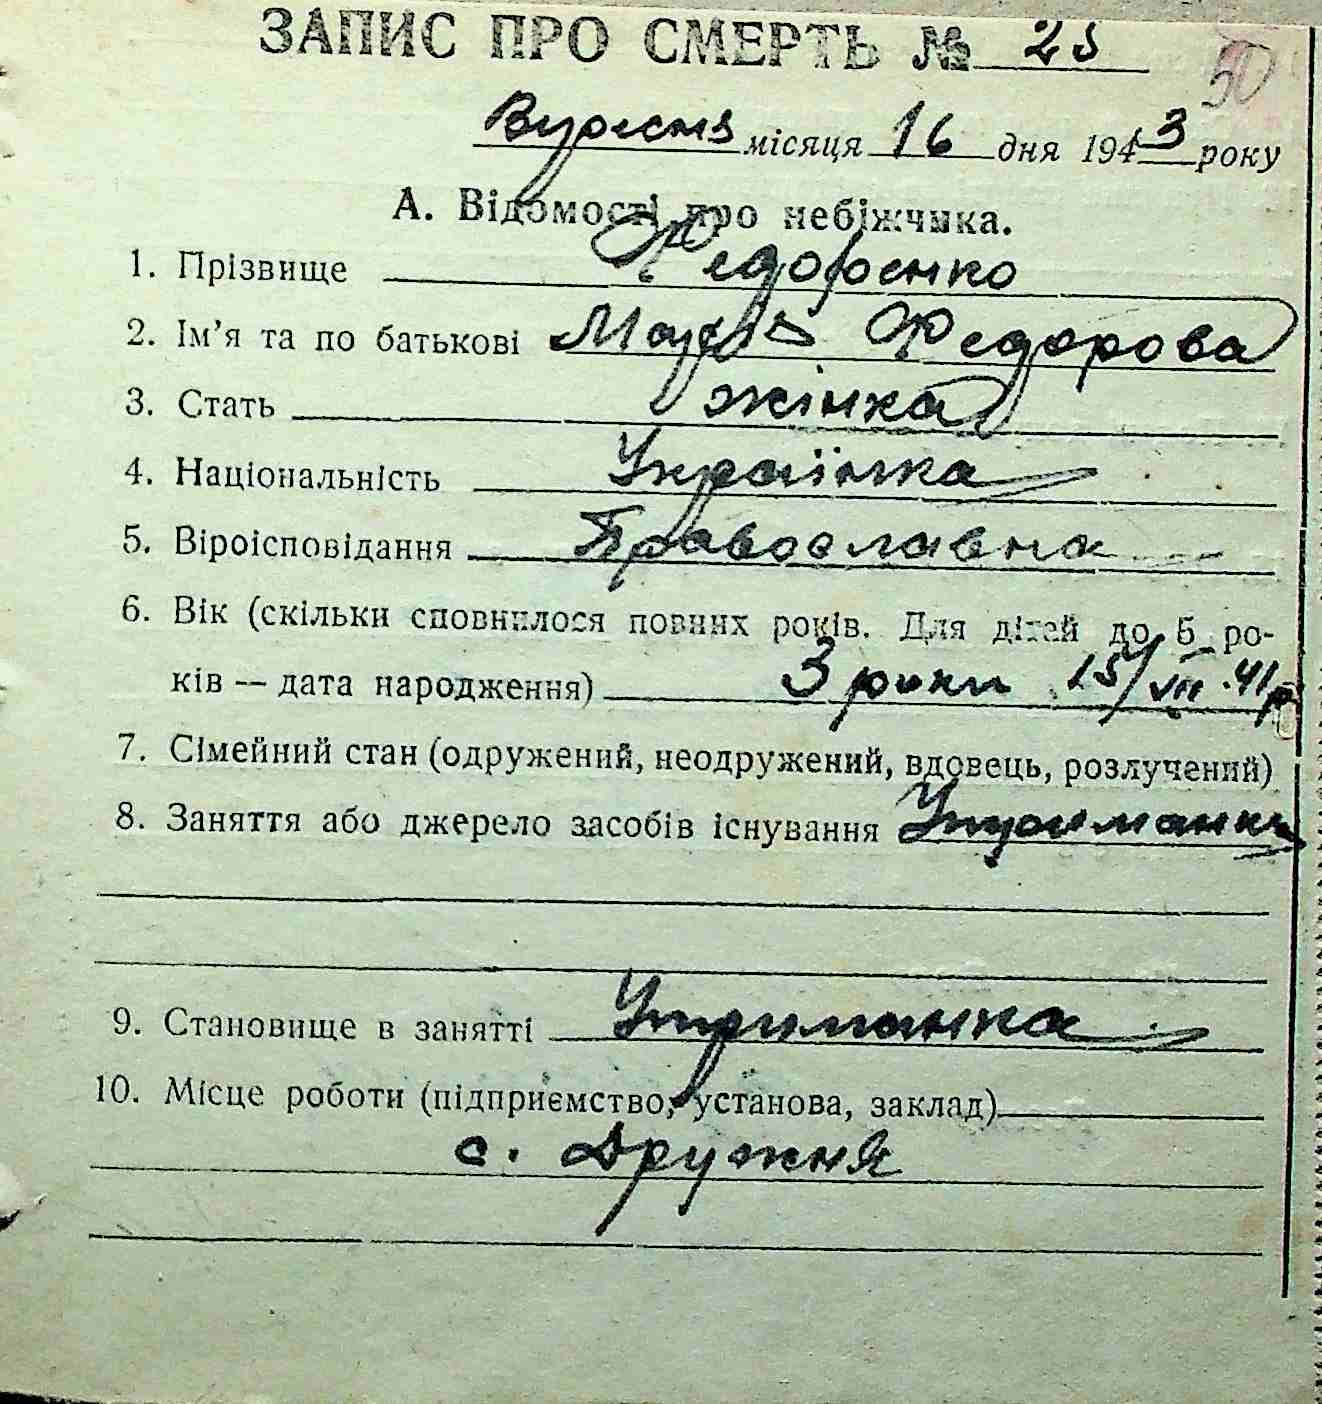 ЗАПИС ПРО СМЕРТЬ № 25
50
Вуресня місяця 16 дня 1943 року
А. Відомості про небіжчика.
1. Прізвище Федоренко
2. Ім’я та по батькові Марія Федорова
3. Стать жінка
4. Національність Українка
5. Віроісповідання Православна
6. Вік (скільки сповнилося повних років. Для дітей до 5 ро-
ків — дата народження) 3 роки 15/VII.41р
7. Сімейний стан (одружений, неодружений, вдовець, розлучений)
8. Заняття або джерело засобів існування Утриманка
9. Становище в занятті Утриманка
10. Місце роботи (підприємство, установа, заклад)
с. Дружня